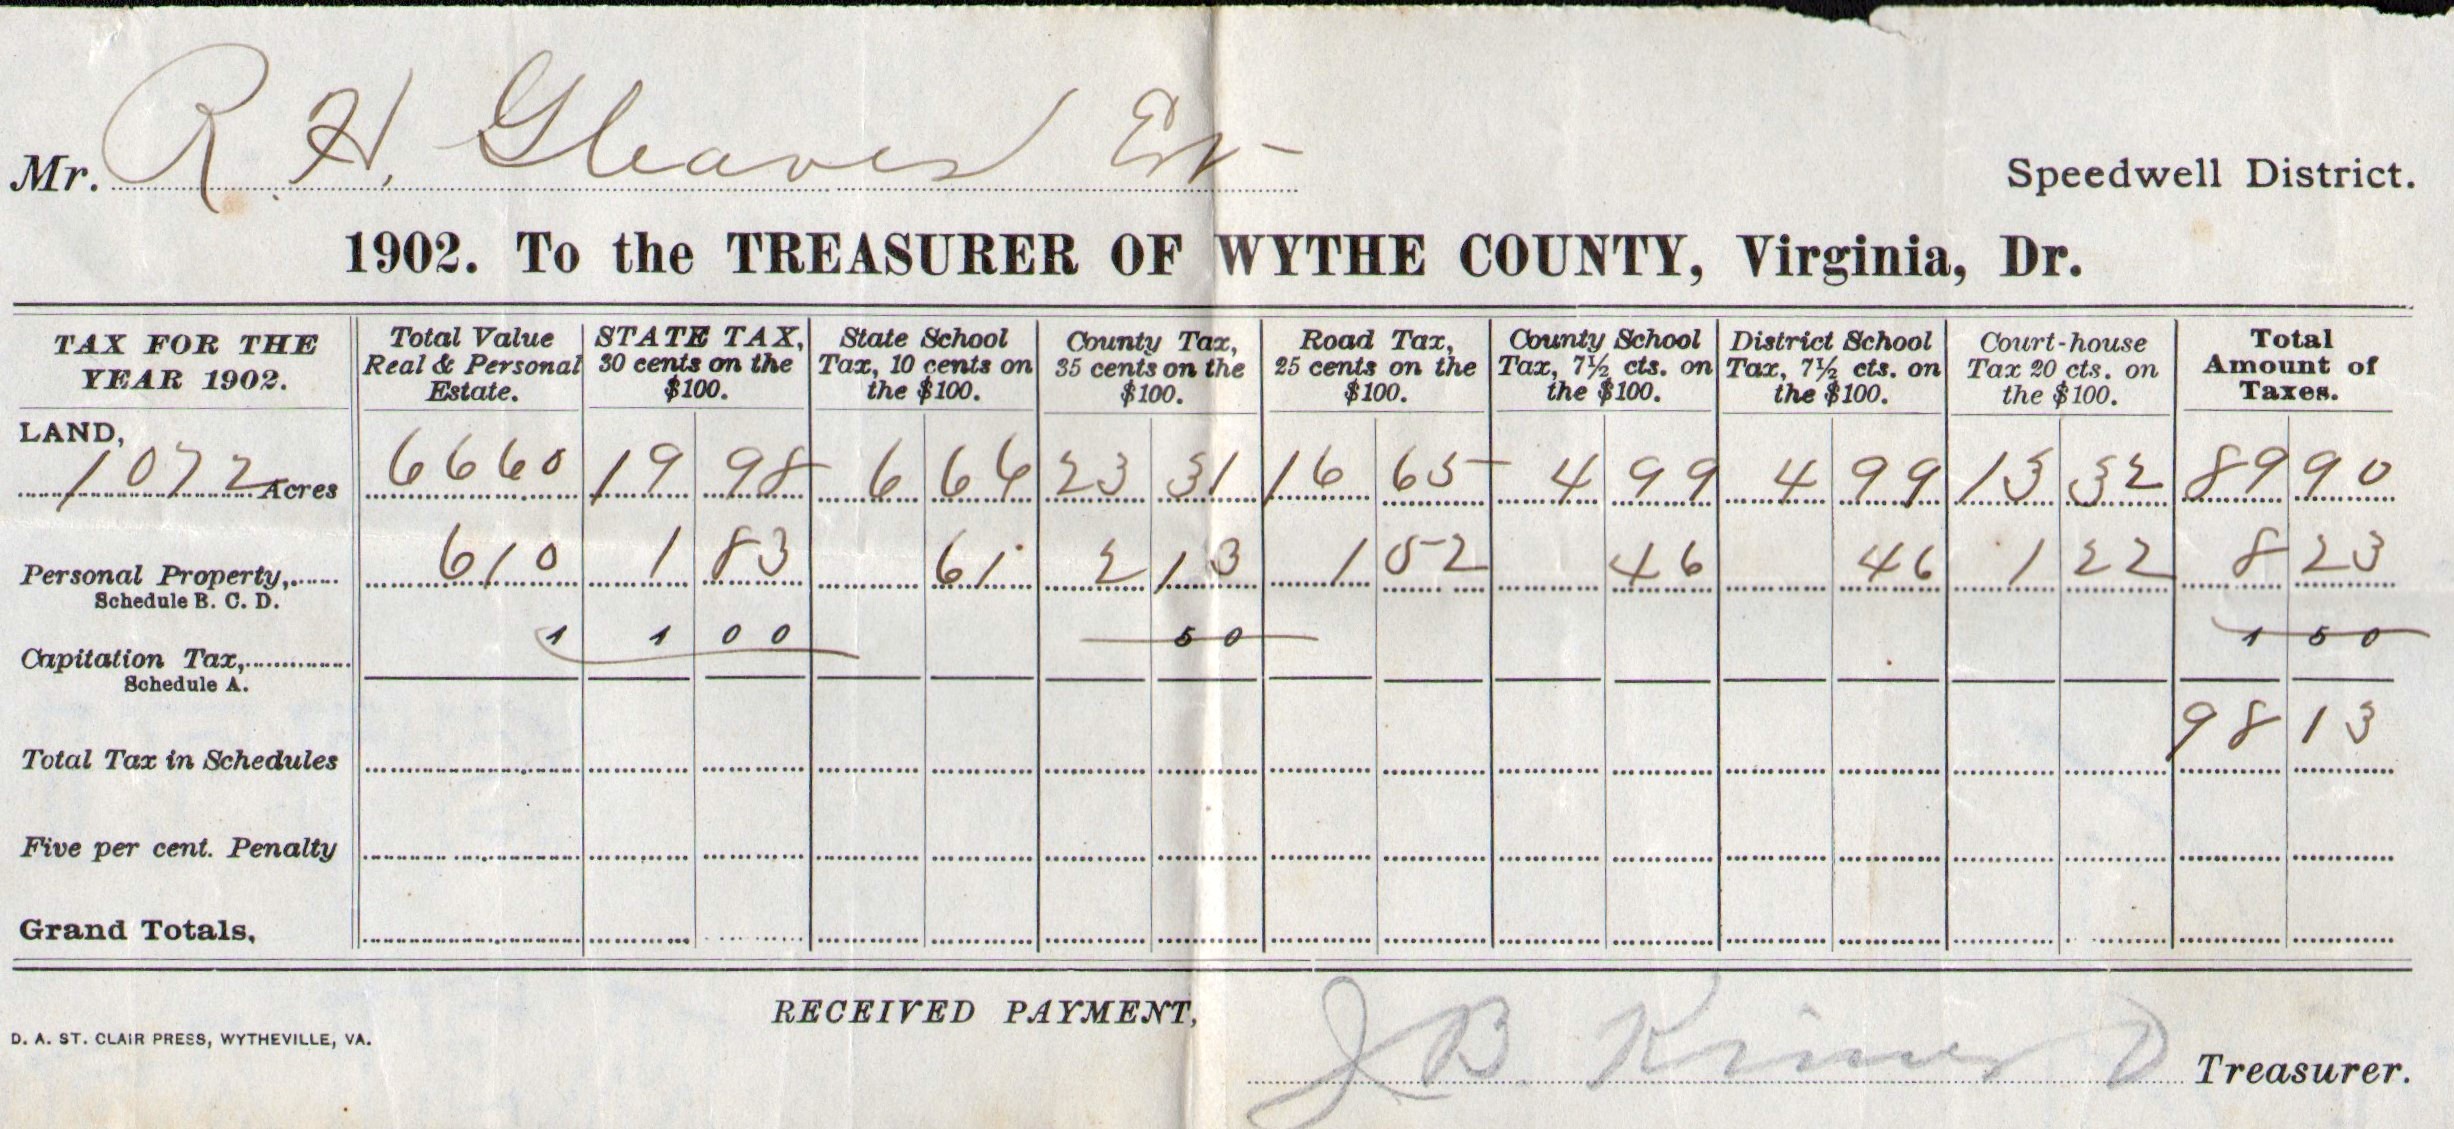 Mr. R. H. Gleaves Est Speedwell District.
1902. To the TREASURER OF WYTHE COUNTY, Virginia, Dr.
TAX FOR THE YEAR 1902. Total Value Real & Personal Estate. STATE TAX, 30 cents on the $100. State School Tax, 10 cents on the $100. County Tax, 35 cents on the $100. Road Tax, 25 cents on the $100. County School Tax, 7½ cts. on the $100. District School Tax, 7½ cts. on the $100. Court-house Tax 20 cts. on the $100. Total Amount of Taxes.
LAND,
1072 Acres 6660 19 98 6 66 23 31 16 65 4 99 4 99 13 32 89 90
Personal Property, 610 1 83 61 2 13 1 52 46 46 1 22 8 23
Schedule B. C. D.
Capitation Tax, 1 1 00 50 1 50
Schedule A.
Total Tax in Schedules 98 13
Five per cent. Penalty
Grand Totals.
RECEIVED PAYMENT,
D. A. ST. CLAIR PRESS, WYTHEVILLE, VA.
J B Treasurer.